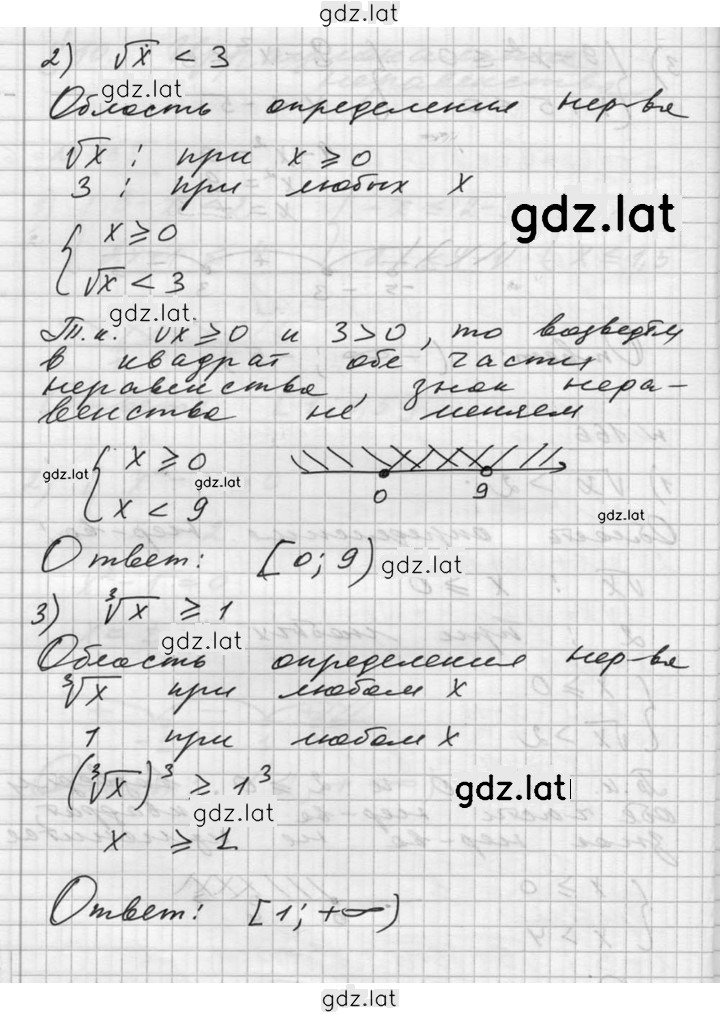 gdz.lat
2) √x < 3
gdz.lat
Область определения нер-ва
√x : при x ⩾ 0
3 : при любых x
gdz.lat
{ x ⩾ 0
√x < 3
gdz.lat
Т.к. √x ⩾ 0 и 3>0, то возведём
в квадрат обе части
неравенства, знак нера-
венства не меняем
gdz.lat { x ⩾ 0 gdz.lat
x < 9 0 9
gdz.lat
Ответ: [0; 9) gdz.lat
3) ∛x ⩾ 1
gdz.lat
Область определения нер-ва
∛x при любом x
1 при любом x
(∛x)³ ⩾ 1³ gdz.lat
gdz.lat
x ⩾ 1
Ответ: [1; +∞)
gdz.lat